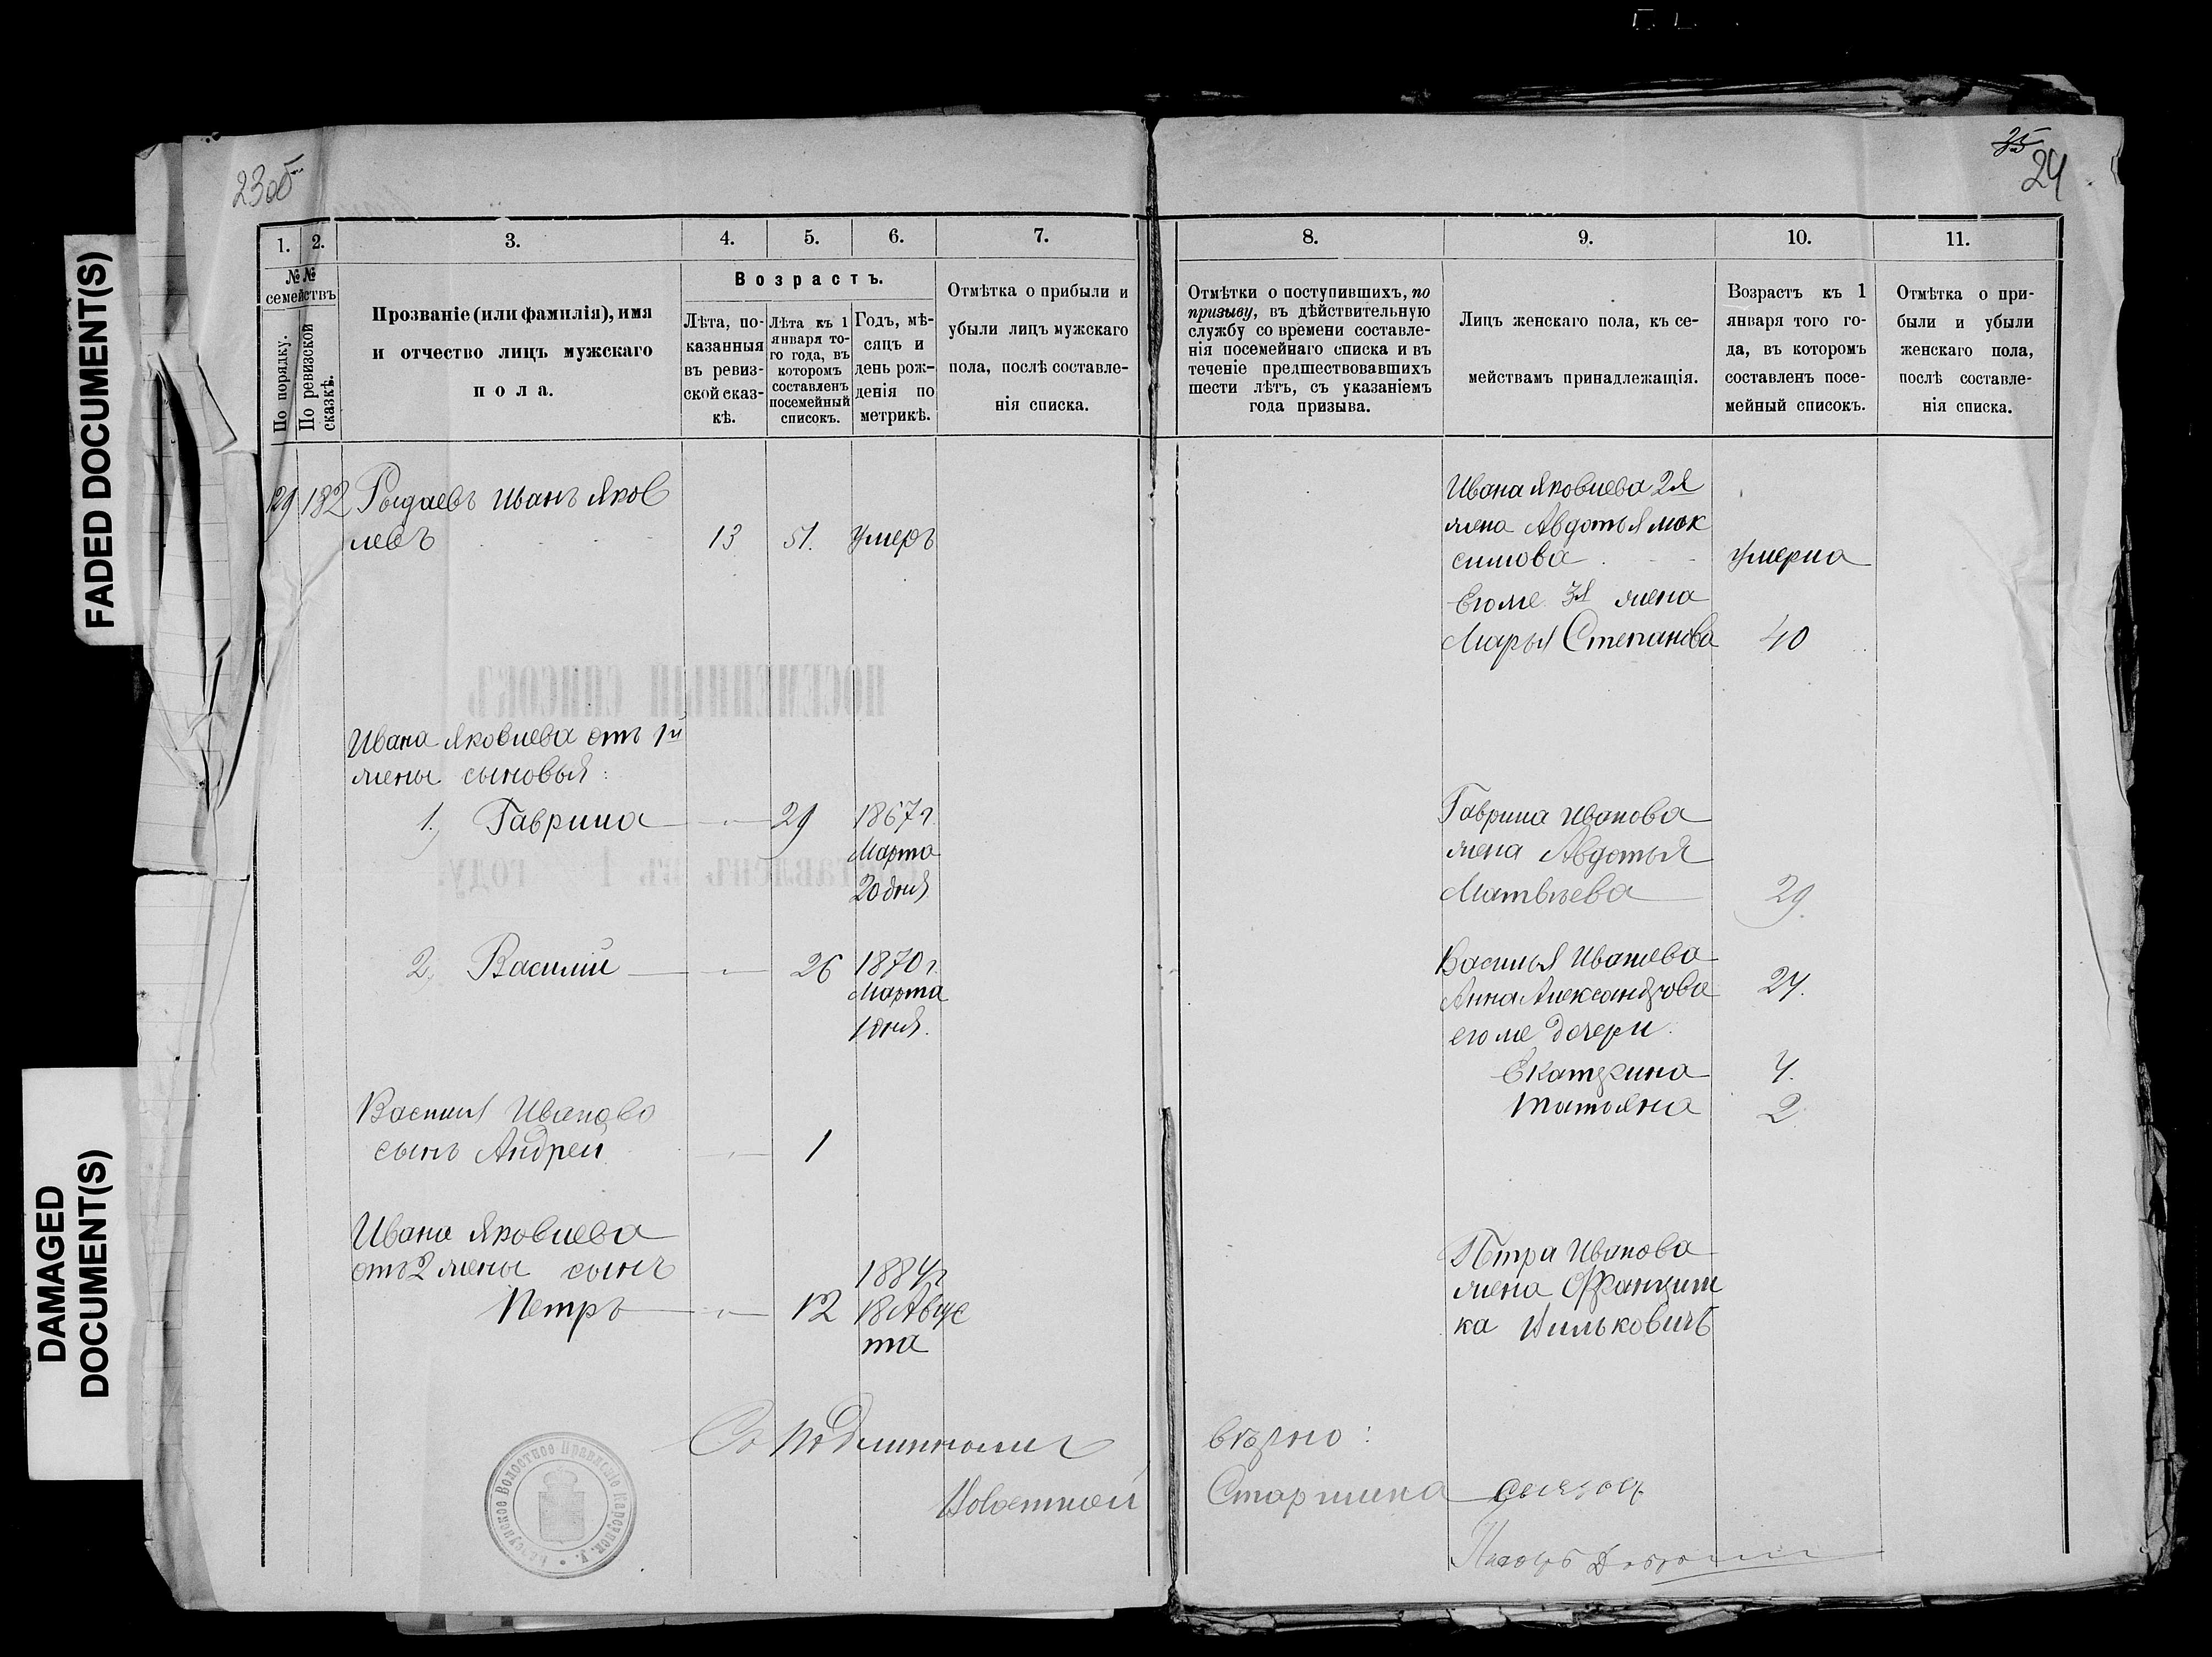 FADED DOCUMENT(S)
DAMAGED
DOCUMENT(S)
23об
1.
2.
3.
4.
5.
6.
7.
№№
семействъ
По порядку.
По ревизской
сказкѣ.
Прозваніе (или фамилія), имя
и отчество лицъ мужскаго
пола.
Возрастъ.
Лѣта, по-
казанныя
въ ревиз-
ской сказ-
кѣ.
Лѣта къ 1
января то-
го года, въ
которомъ
составленъ
посемейный
списокъ.
Годъ, мѣ-
сяцъ и
день рож-
денія по
метрикѣ.
Отмѣтка о прибыли и
убыли лицъ мужскаго
пола, послѣ составле-
нія списка.
29 182 Рыдаевъ Иванъ Яков
левъ 13 51. умеръ
Ивана Яковлева отъ 1й
жены сыновья:
1. Гаврила 29 1867 г.
Марта
20 дня
2. Василій 26 1870 г.
Марта
1 дня.
Василія Иванова
сынъ Андрей 1
Ивана Яковлева
отъ 2 жены сынъ 1884 г
Петръ 12 18 Авгус
та
Съ подлиннымъ
Волостной
Волостное Правленіе
35
24
8.
9.
10.
11.
Отмѣтки о поступившихъ, по
призыву, въ дѣйствительную
службу со времени составле-
нія посемейнаго списка и въ
теченіе предшествовавшихъ
шести лѣтъ, съ указаніемъ
года призыва.
Лицъ женскаго пола, къ се-
мействамъ принадлежащія.
Возрастъ къ 1
января того го-
да, въ которомъ
составленъ посе-
мейный списокъ.
Отмѣтка о при-
были и убыли
женскаго пола,
послѣ составле-
нія списка.
Ивана Яковлева 2я
жена Авдотья Мак
симова умерла
Егоже 3я жена
Марья Степанова 40
Гаврила Иванова
жена Авдотья
Матвѣева 29
Василья Иванова
Анна Александрова 27.
егоже дочери
Екатерина 4.
Татьяна 2
Петра Иванова
жена Францишка
ка Вильковичъ
вѣрно:
Старшина